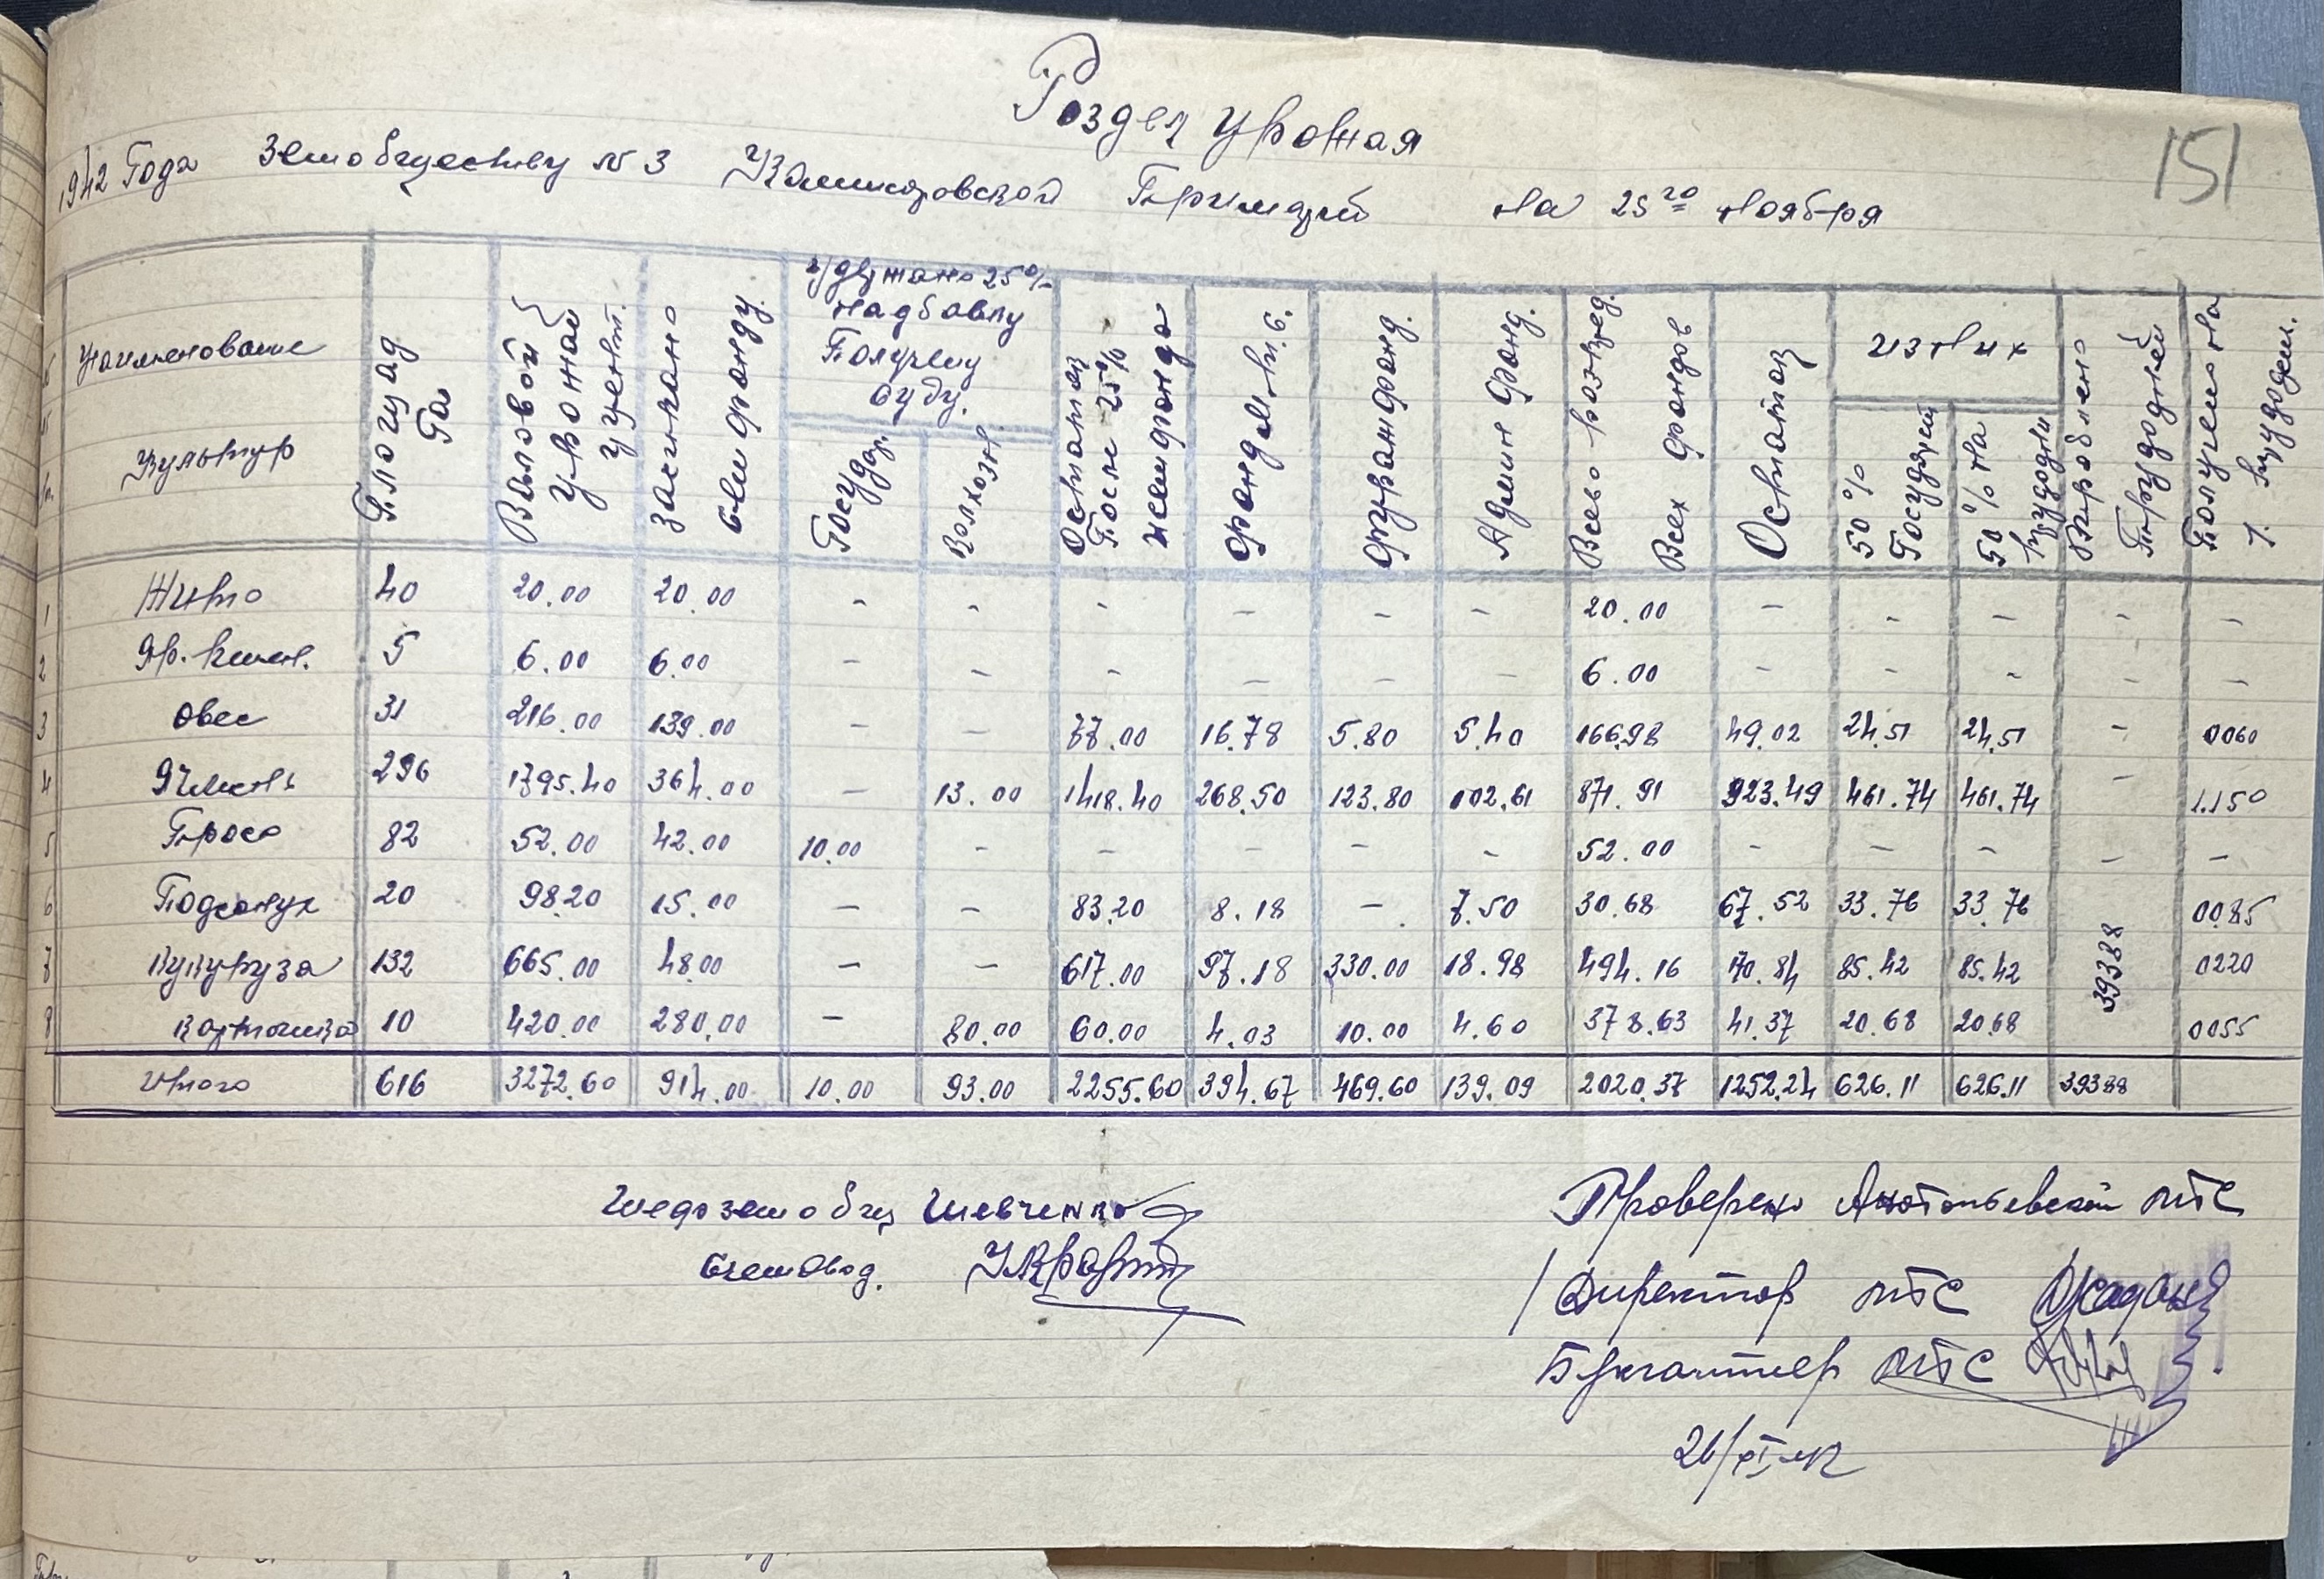 151
Роздел урожая
1942 Года Земобществу № 3 Канторовской Примарии на 25го ноября
Наименование Культур | Площад Га | Валовой урожай центн. | Засипано сем фонду. | Удержано 25% надбавку Получену суду. Государ. | Колхозн. | Остаток После 25% и семфонда | Фонд М.т.с. | Фуражфонд. | Админ фонд. | Всего развед. Всех фондов | Остаток | из них 50% Государст | 50% на трудодни | Вироблено Трудодней | Получено на 1. трудоден.
1 Жито 40 20.00 20.00 - - - - - - 20.00 - - - - -
2 Яр. пшен. 5 6.00 6.00 - - - - - - 6.00 - - - - -
3 Овес 31 216.00 139.00 - - 77.00 16.78 5.80 5.40 166.98 49.02 24.51 24.51 - 0060
4 Ячмень 296 1795.40 364.00 - 13.00 1418.40 268.50 123.80 102.61 871.91 923.49 461.74 461.74 - 1.150
5 Просо 82 52.00 42.00 10.00 - - - - - 52.00 - - - - -
6 Подсонух 20 98.20 15.00 - - 83.20 8.18 - 7.50 30.68 67.52 33.76 33.76 0085
7 Кукуруза 132 665.00 48.00 - - 617.00 97.18 330.00 18.98 494.16 170.84 85.42 85.42 39388 0220
8 Картошка 10 420.00 280.00 - 80.00 60.00 4.03 10.00 4.60 378.63 41.37 20.68 20.68 0055
Итого 616 3272.60 914.00 10.00 93.00 2255.60 394.67 469.60 139.09 2020.37 1252.24 626.11 626.11 39388
Шевченко
Счетовод.
Проверено Анатольевской МТС
Директор МТС
Бухгалтер МТС
26/XI-42